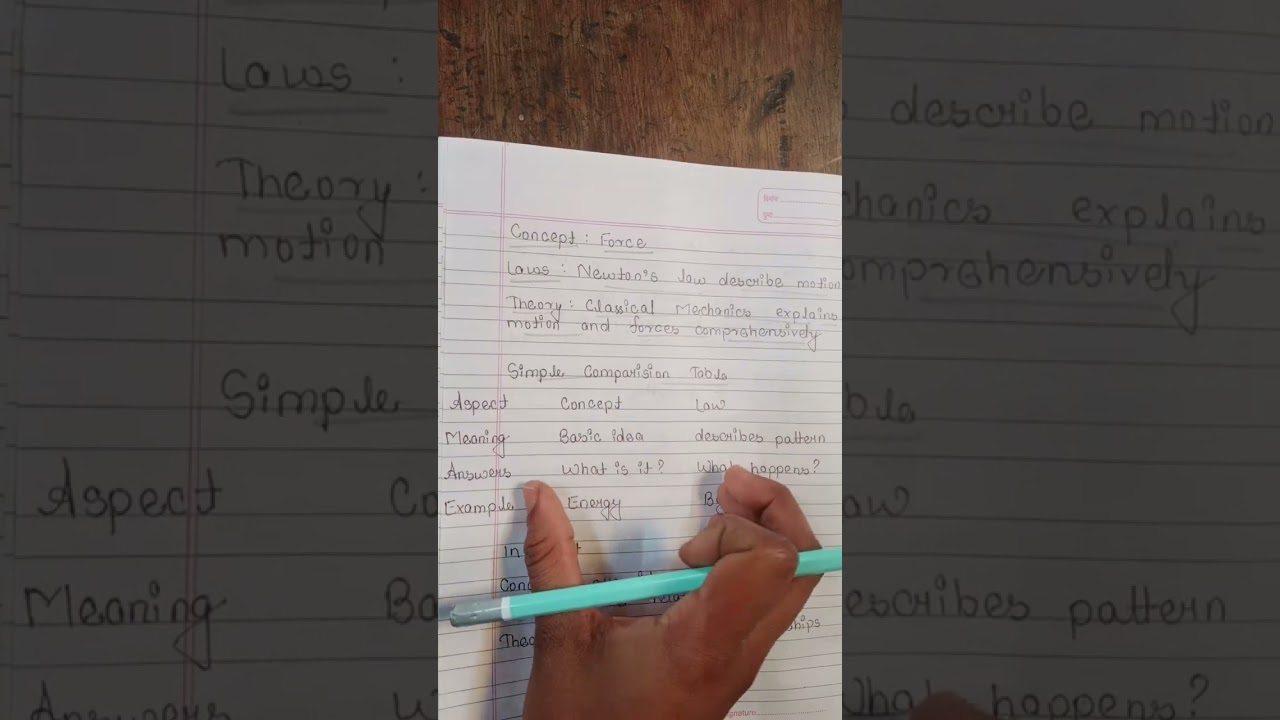 दिनांक
पृष्ठ
Concept : Force
Laws : Newton's law describe motion
Theory : Classical Mechanics explains
motion and forces comprehensively
Simple Comparision Table
Aspect Concept Law
Meaning Basic idea describes pattern
Answers What is it? What happens?
Example Energy